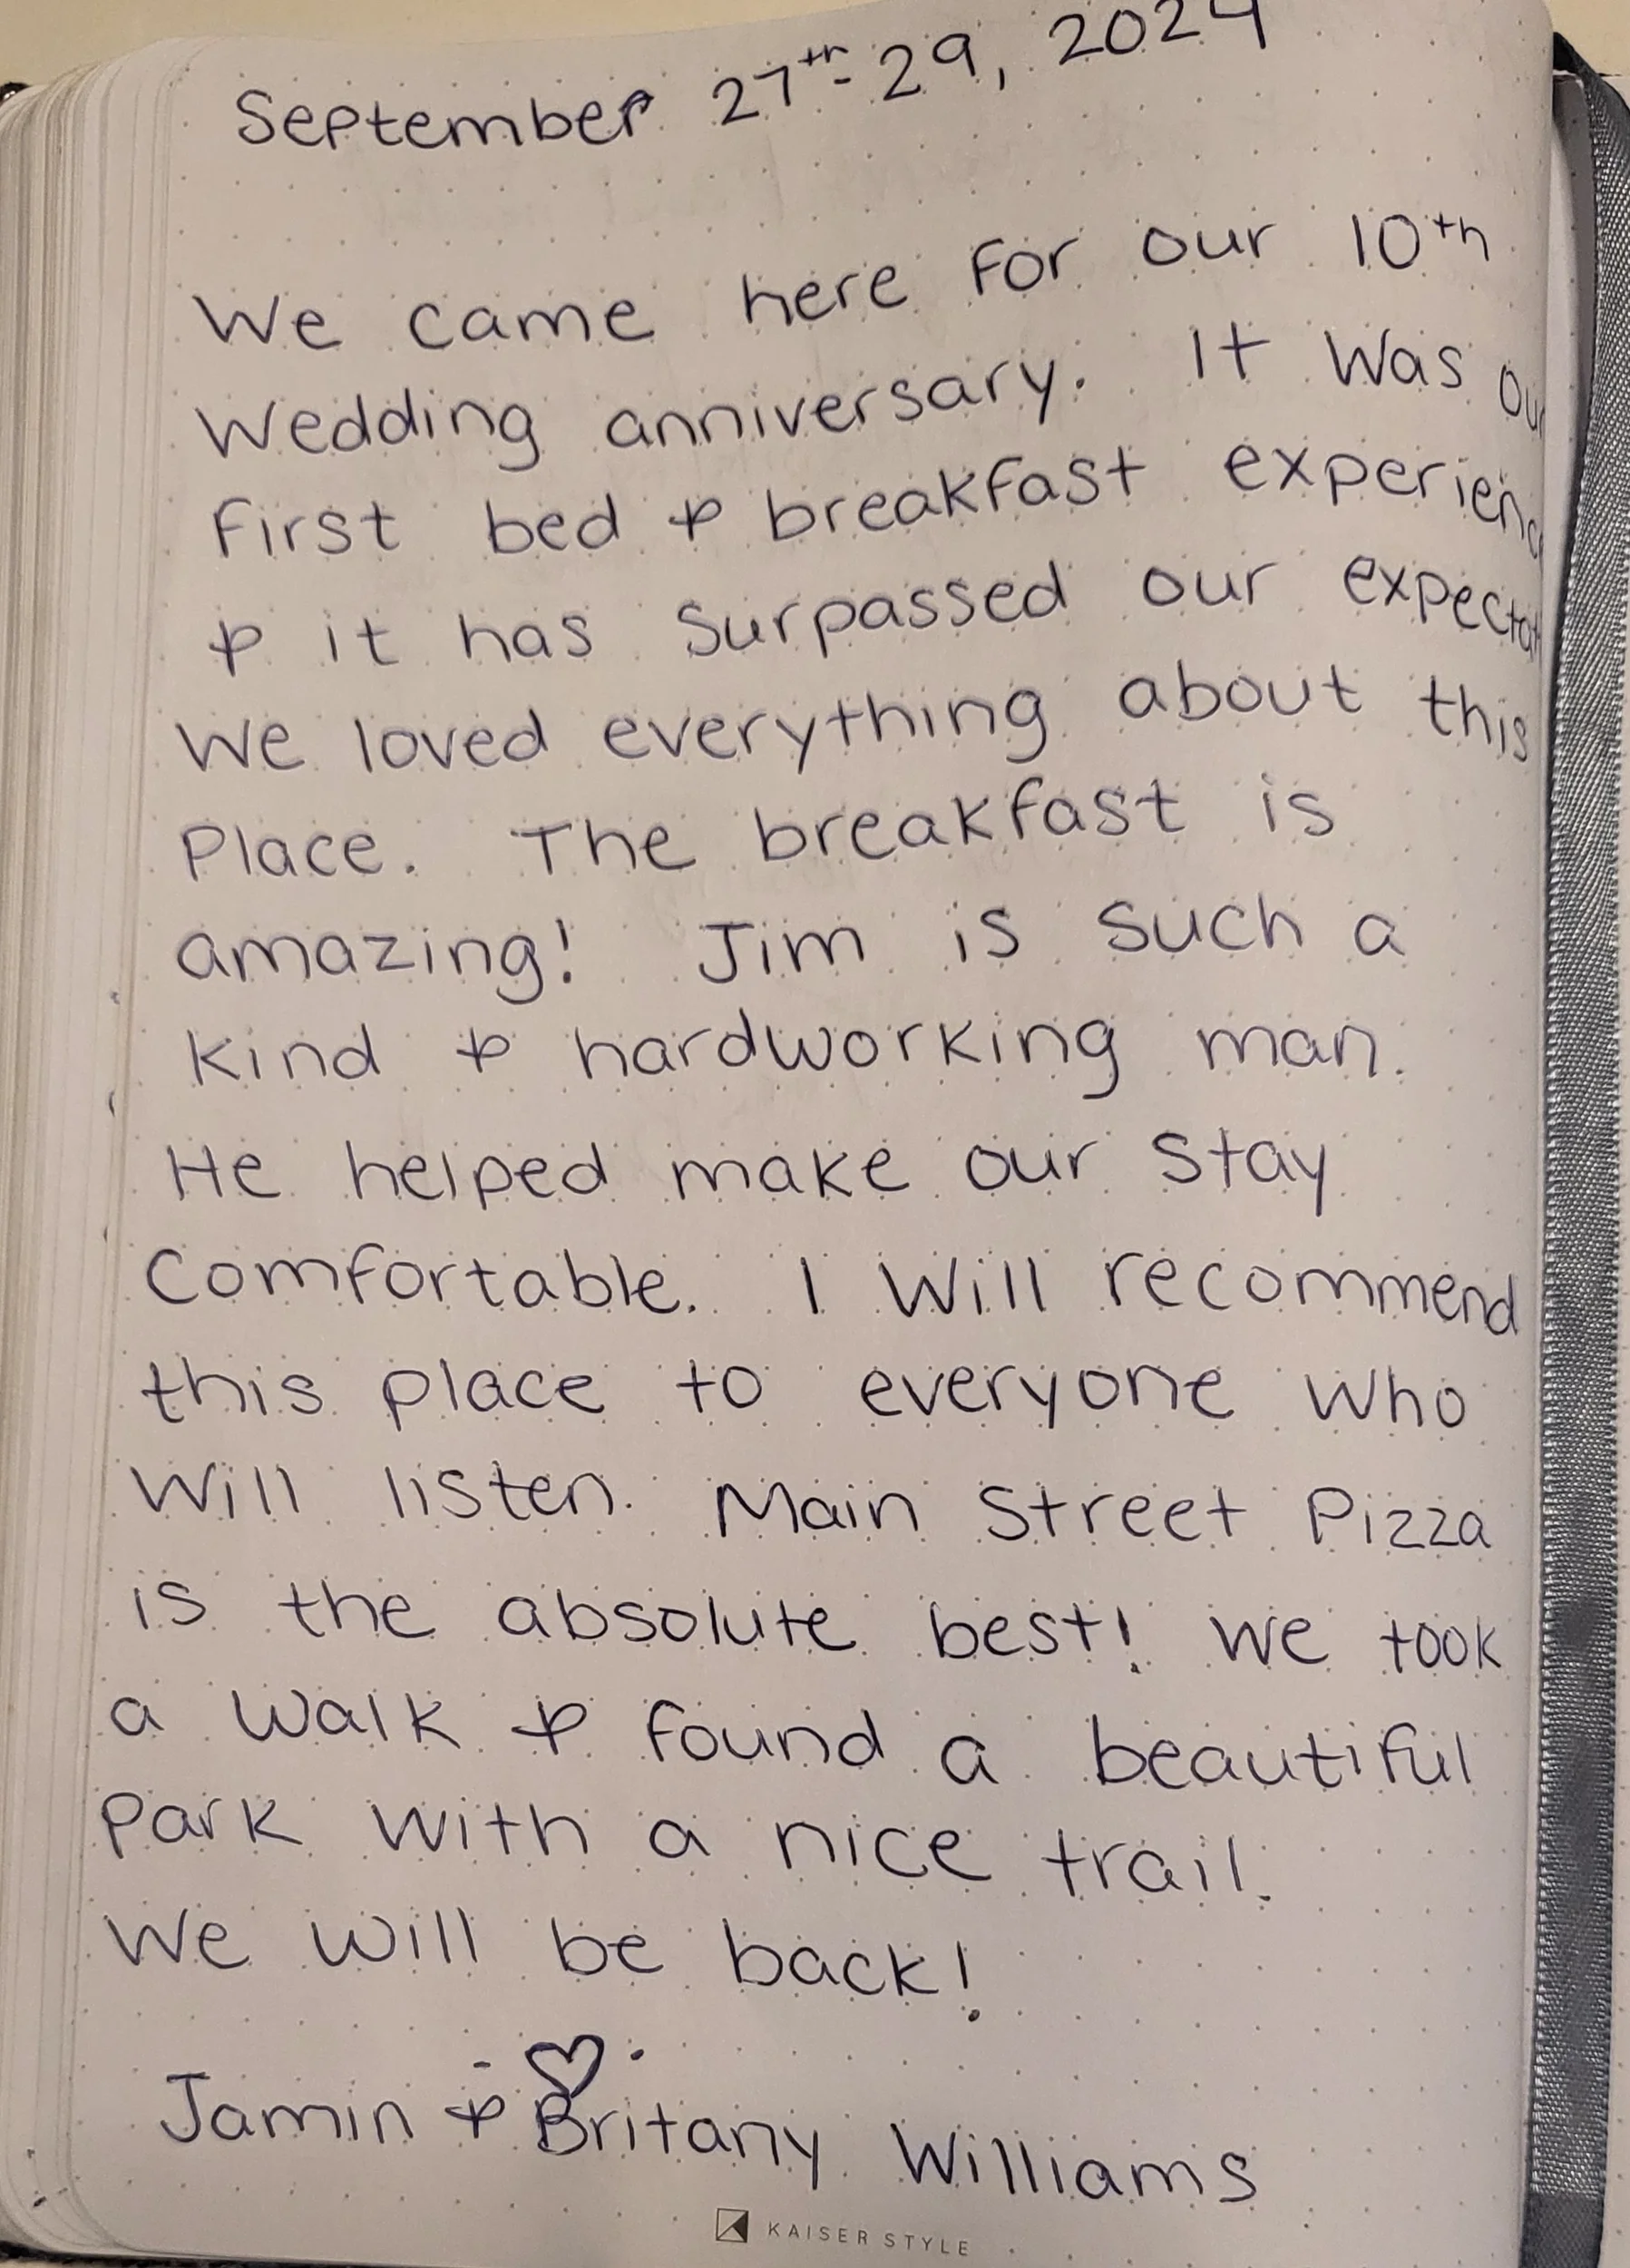 September 27th-29, 2024
We came here for our 10th
wedding anniversary. It was our
first bed & breakfast experienc
& it has surpassed our expectat
We loved everything about this
Place. The breakfast is
amazing! Jim is such a
kind & hardworking man.
He helped make our stay
comfortable. I will recommend
this place to everyone who
will listen. Main Street Pizza
is the absolute best! We took
a walk & found a beautiful
park with a nice trail.
We will be back!
Jamin & Britany Williams
KAISER STYLE